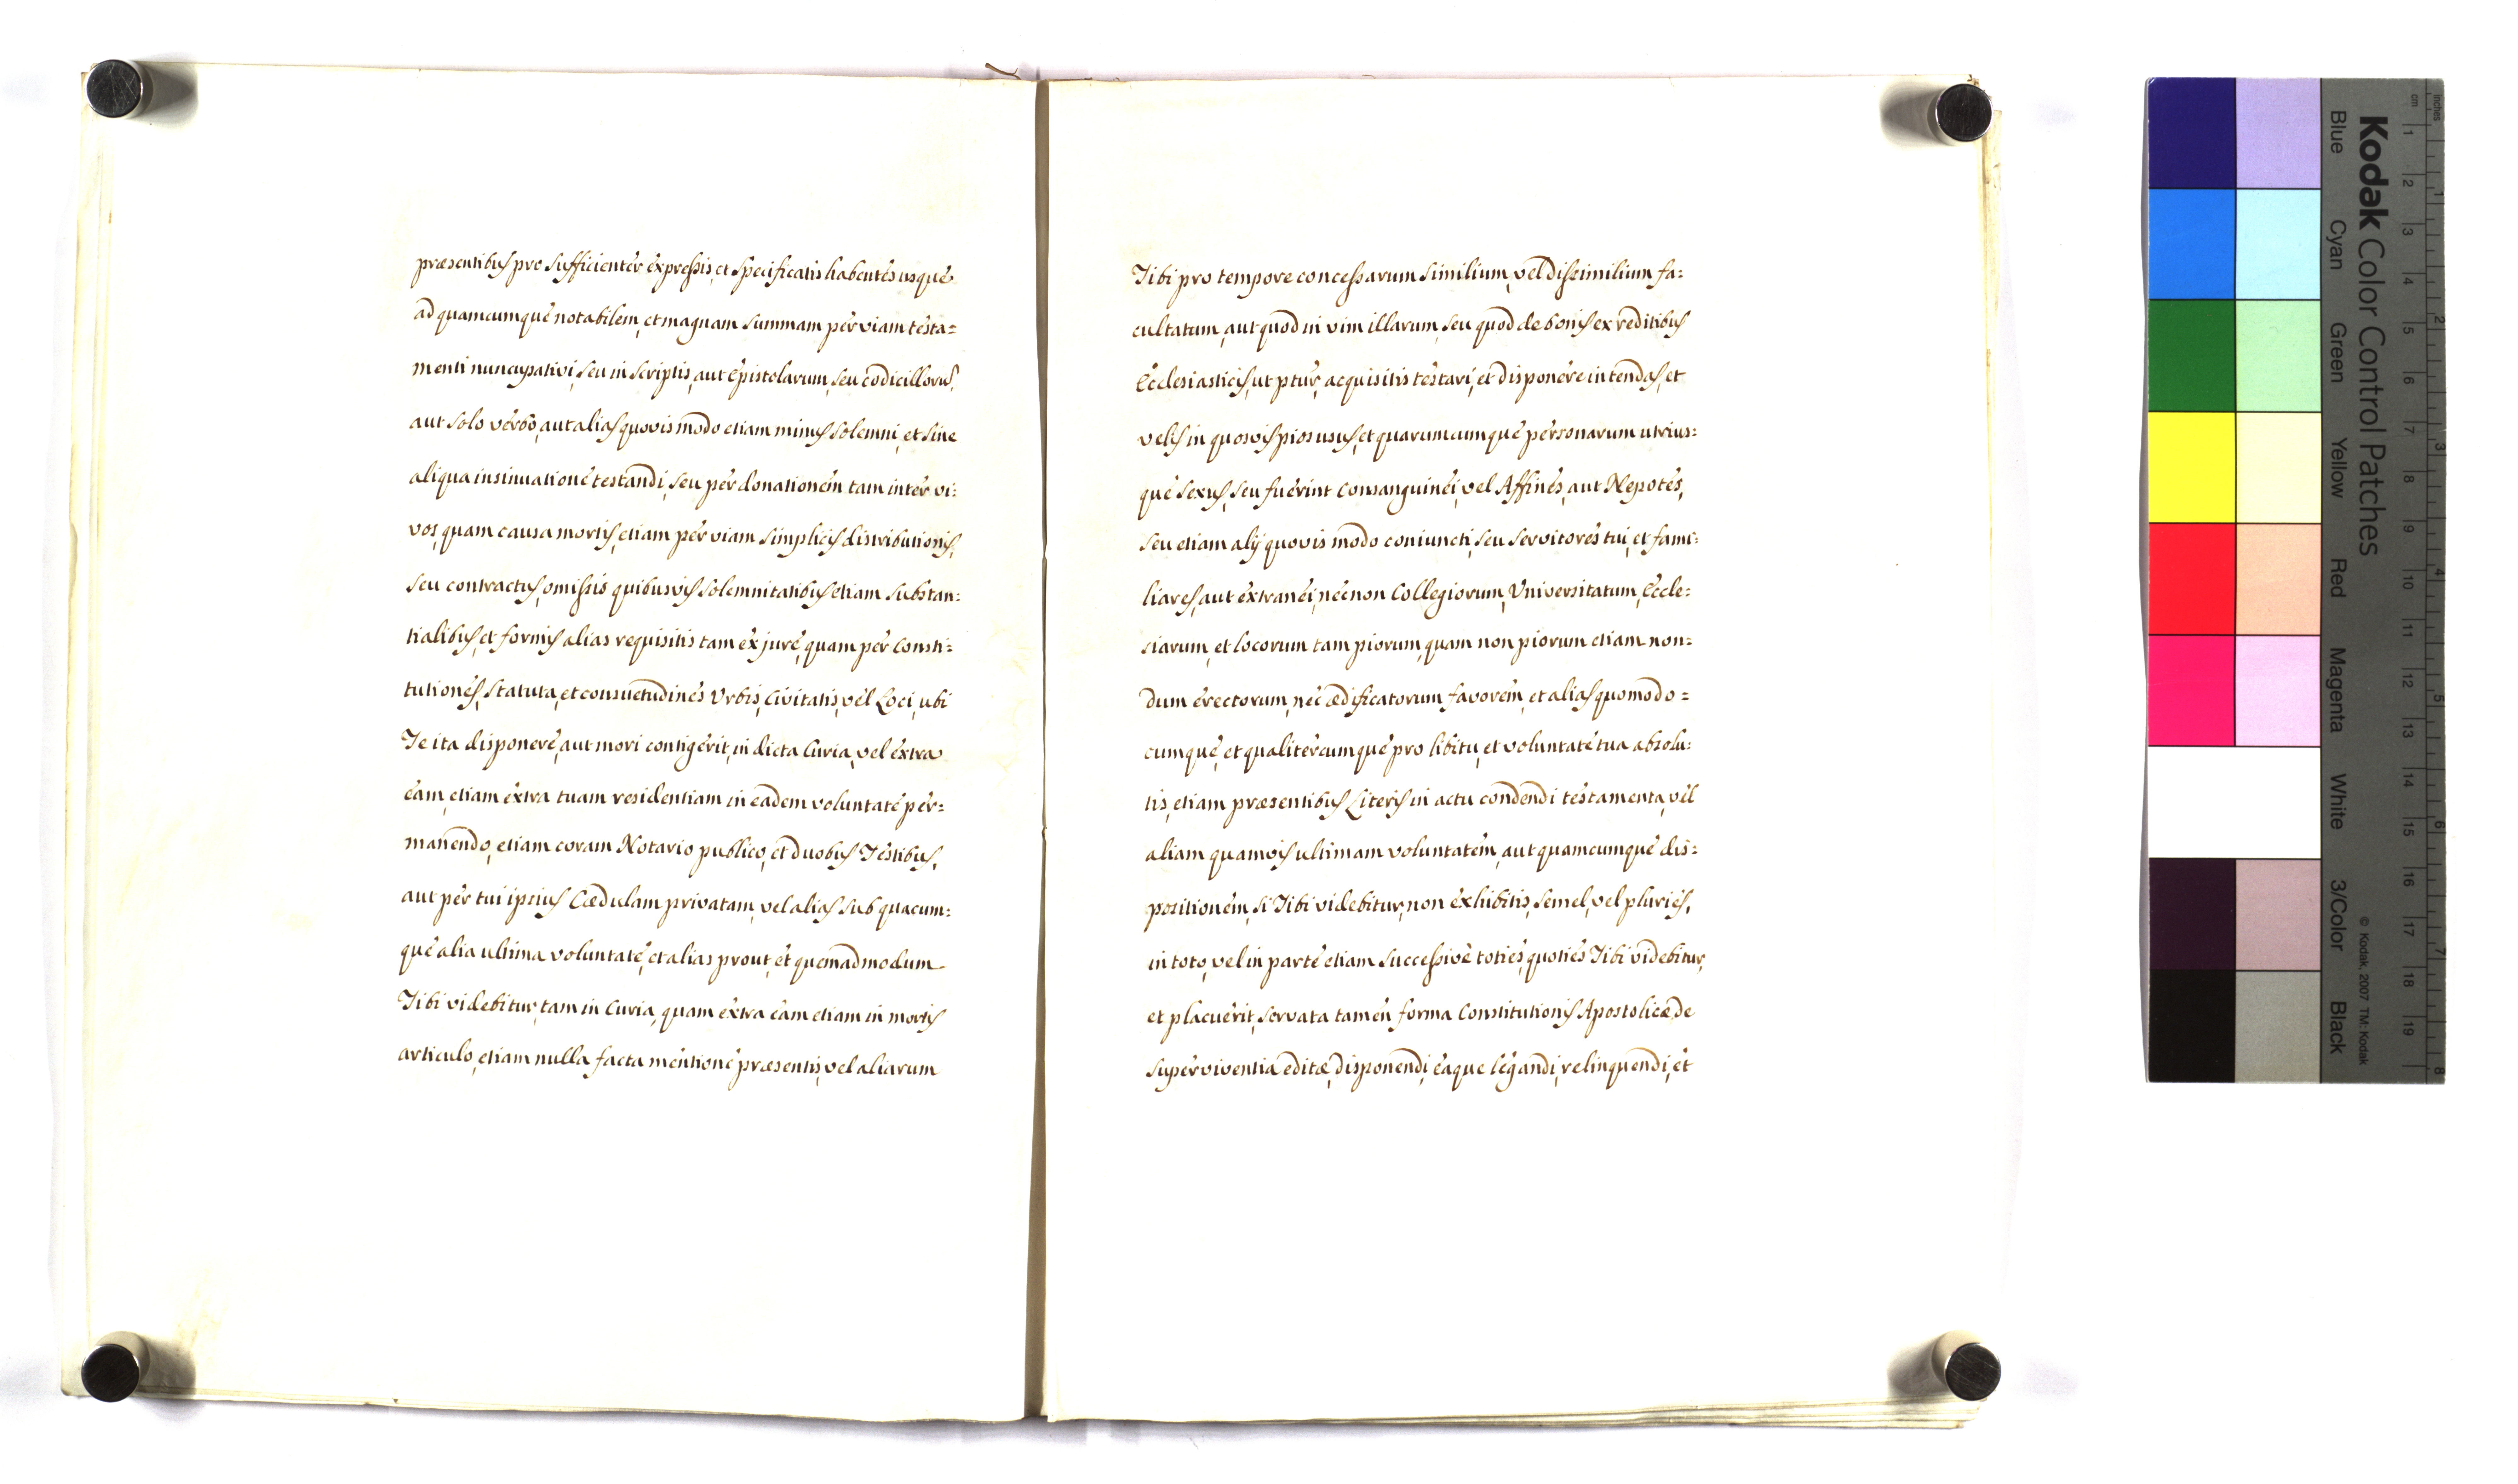 præsentibus pro sufficienter expressis, et specificatis habentes usque
ad quamcumque notabilem, et magnam summam per viam testa=
menti nuncupativi, seu in scriptis, aut epistolarum, seu codicillorũ,
aut solo verbo, aut alias quovis modo etiam minus solemni, et sine
aliqua insinuatione testandi, seu per donationem tam inter vi=
vos, quam causa mortis, etiam per viam simplicis distributionis,
seu contractus, omissis quibusvis solemnitatibus etiam substan=
tialibus, et formis alias requisitis tam ex jure, quam per consti=
tutiones, statuta, et consuetudines Urbis, Civitatis, vel Loci, ubi
Te ita disponere, aut mori contigerit, in dicta Curia, vel extra
eam, etiam extra tuam residentiam in eadem voluntate per=
manendo, etiam coram Notario publico, et duobus Testibus,
aut per tui ipsius Cædulam privatam, vel alias sub quacum=
que alia ultima voluntate, et alias prout, et quemadmodum
Tibi videbitur, tam in Curia, quam extra eam etiam in mortis
articulo, etiam nulla facta mentione præsentis, vel aliarum
Tibi pro tempore concessarum similium, vel dissimilium fa=
cultatum, aut quod in vim illarum, seu quod de bonis ex reditibus
Ecclesiasticis, ut ptur, acquisitis testari, et disponere intendas, et
velis in quosvis pios usus, et quarumcumque personarum utrius=
que sexus, seu fuerint consanguinei, vel Affines, aut Nepotes,
seu etiam alij quovis modo coniuncti, seu servitores tui, et fami=
liares, aut extranei, necnon Collegiorum, Universitatum, Eccle=
siarum, et locorum tam piorum, quam non piorum etiam non=
dum erectorum, nec ædificatorum favorem, et alias quomodo=
cumque, et qualitercumque pro libitu, et voluntate tua absolu=
tis, etiam præsentibus Literis in actu condendi testamenta, vel
aliam quamvis ultimam voluntatem, aut quamcumque dis=
positionem, si Tibi videbitur, non exhibitis, semel, vel pluries,
in toto, vel in parte etiam successive toties, quoties Tibi videbitur,
et placuerit, servata tamen forma Constitutionis Apostolicæ, de
super viventia editæ, disponendi, eaque legandi, relinquendi, et
Kodak Color Control Patches
Blue Cyan Green Yellow Red Magenta White 3/Color Black
© Kodak, 2007 TM: Kodak
cm 1 2 3 4 5 6 7 8 9 10 11 12 13 14 15 16 17 18 19
inches 1 2 3 4 5 6 7 8